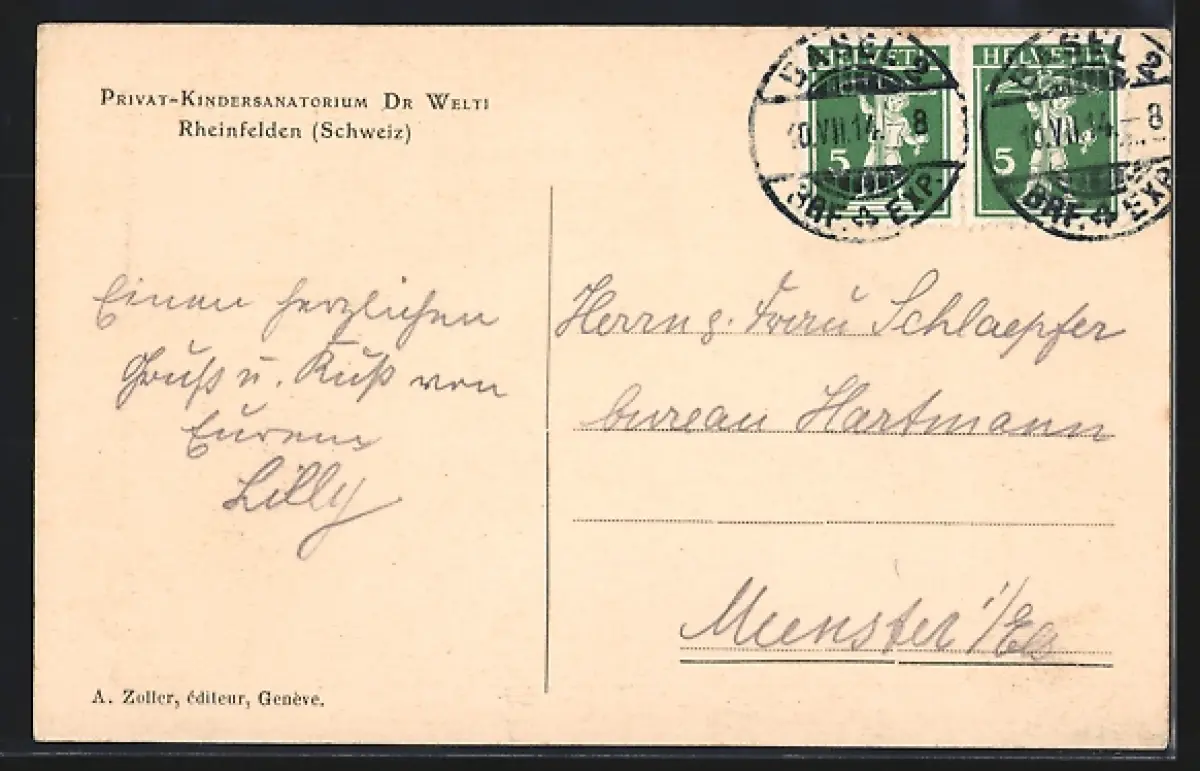 PRIVAT-KINDERSANATORIUM DR WELTI
Rheinfelden (Schweiz)
BASEL 2
10.VII.14.-8
BRF. EXP.
HELVETIA
5
BASEL 2
10.VII.14.-8
BRF. EXP.
HELVETIA
5
Einen herzlichen
Gruß u. Kuß von
Eurem
Lilly
Herrn & Frau Schlaepfer
bureau Hartmann
Munster i/Els
A. Zoller, éditeur, Genève.